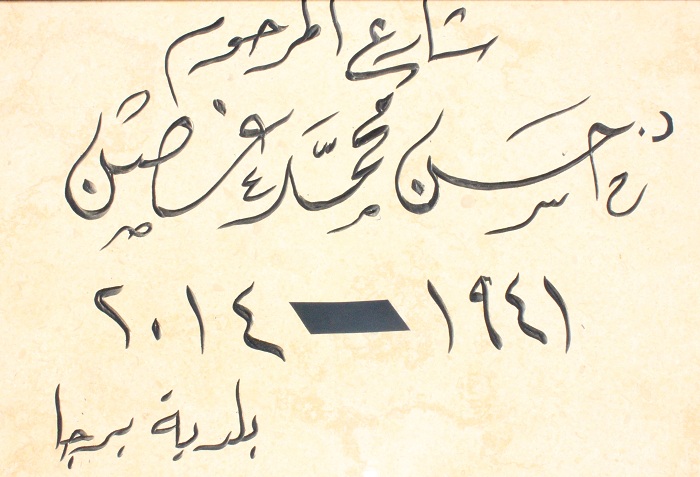 شارع المرحوم
د. حسن محمد
١٩٤١ - ٢٠١٤
بلدية برجا